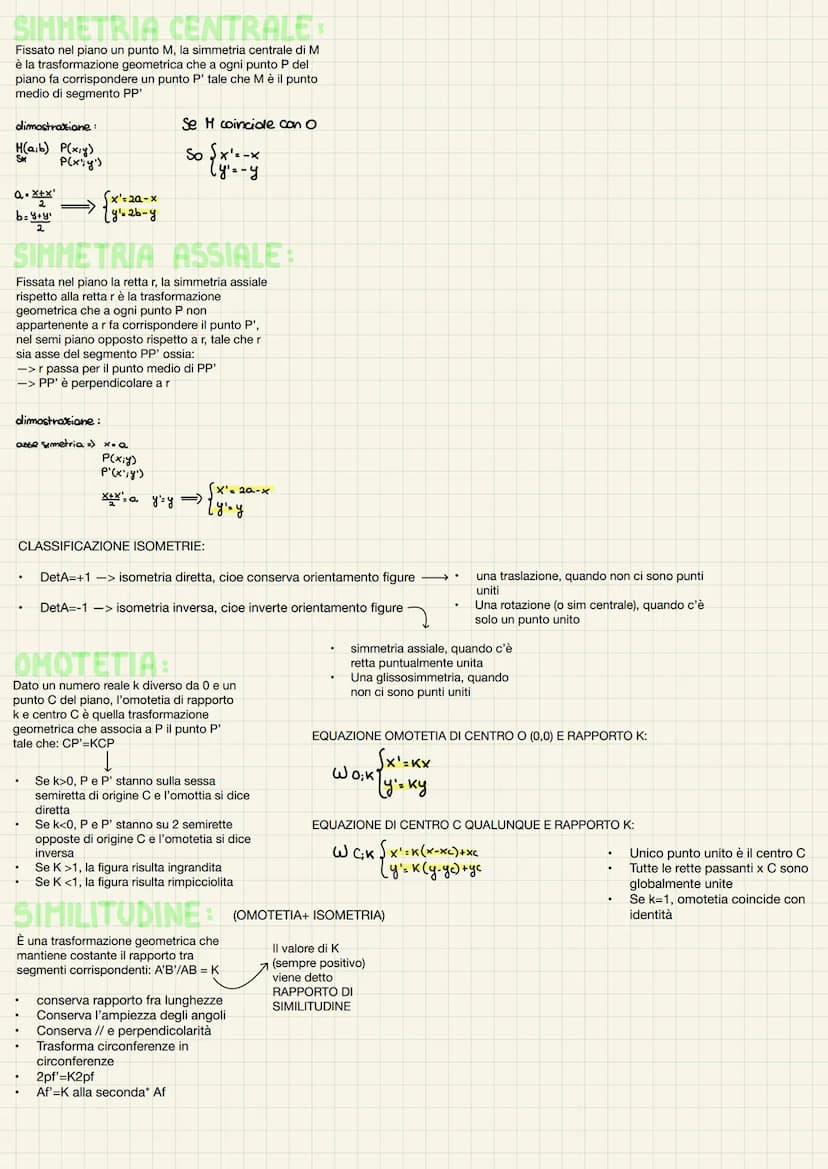 SIMMETRIA CENTRALE:
Fissato nel piano un punto M, la simmetria centrale di M
è la trasformazione geometrica che a ogni punto P del
piano fa corrispondere un punto P' tale che M è il punto
medio di segmento PP'
dimostrazione:
Se M coincide con O
M(a;b) P(x;y)
SM P(x';y')
So {x'=-x
y'=-y
a=x+x'/2
b=y+y'/2
⟹ {x'=2a-x
y'=2b-y
SIMMETRIA ASSIALE:
Fissata nel piano la retta r, la simmetria assiale
rispetto alla retta r è la trasformazione
geometrica che a ogni punto P non
appartenente a r fa corrispondere il punto P',
nel semi piano opposto rispetto a r, tale che r
sia asse del segmento PP' ossia:
—> r passa per il punto medio di PP'
—> PP' è perpendicolare a r
dimostrazione:
asse simmetria => x=a
P(x;y)
P'(x';y')
x+x'/2=a y'=y ⟹ {x'=2a-x
y'=y
CLASSIFICAZIONE ISOMETRIE:
• DetA=+1 —> isometria diretta, cioe conserva orientamento figure ⟶
• una traslazione, quando non ci sono punti
uniti
• Una rotazione (o sim centrale), quando c'è
solo un punto unito
• DetA=-1 —> isometria inversa, cioe inverte orientamento figure
• simmetria assiale, quando c'è
retta puntualmente unita
• Una glissosimmetria, quando
non ci sono punti uniti
OMOTETIA:
Dato un numero reale k diverso da 0 e un
punto C del piano, l'omotetia di rapporto
k e centro C è quella trasformazione
geometrica che associa a P il punto P'
tale che: CP'=KCP
• Se k>0, P e P' stanno sulla sessa
semiretta di origine C e l'omottia si dice
diretta
• Se k<0, P e P' stanno su 2 semirette
opposte di origine C e l'omotetia si dice
inversa
• Se K >1, la figura risulta ingrandita
• Se K <1, la figura risulta rimpicciolita
EQUAZIONE OMOTETIA DI CENTRO O (0,0) E RAPPORTO K:
ω O;K {x'=Kx
y'=Ky
EQUAZIONE DI CENTRO C QUALUNQUE E RAPPORTO K:
ω C;K {x'=K(x-xc)+xc
y'=K(y-yc)+yc
• Unico punto unito è il centro C
• Tutte le rette passanti x C sono
globalmente unite
• Se k=1, omotetia coincide con
identità
SIMILITUDINE: (OMOTETIA+ ISOMETRIA)
È una trasformazione geometrica che
mantiene costante il rapporto tra
segmenti corrispondenti: A'B'/AB = K
Il valore di K
(sempre positivo)
viene detto
RAPPORTO DI
SIMILITUDINE
• conserva rapporto fra lunghezze
• Conserva l'ampiezza degli angoli
• Conserva // e perpendicolarità
• Trasforma circonferenze in
circonferenze
• 2pf'=K2pf
• Af'=K alla seconda* Af